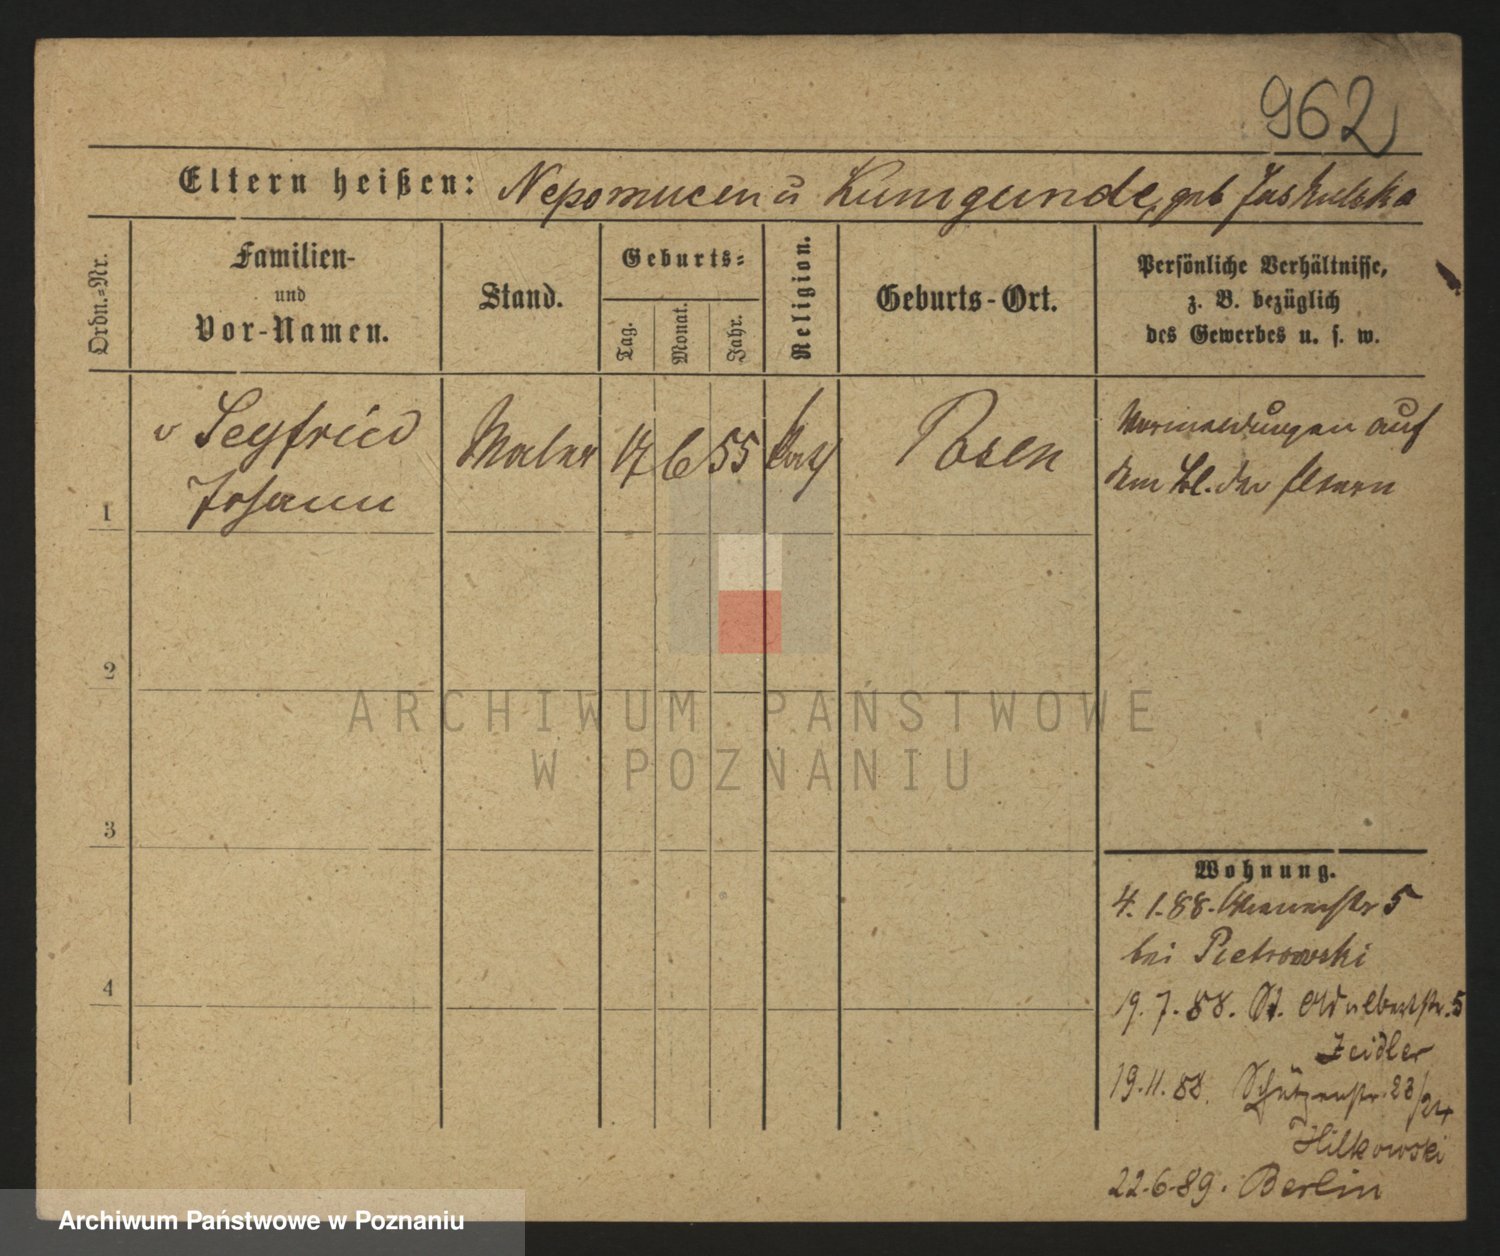 962
Eltern heißen: Nepomucen u Kunigunde, geb Jaskulska
Ordn.-Nr.
Familien-
und
Vor-Namen.
Stand.
Geburts-
Tag.
Monat.
Jahr.
Religion.
Geburts-Ort.
Persönliche Verhältnisse,
z. B. bezüglich
des Gewerbes u. s. w.
1
v Seyfried
Johann
Maler
17
6
55
kath
Posen
Vormeldungen auf
dem Bl. der Eltern
2
3
4
Wohnung.
4. 1. 88. 5
bei Pietrowski
19. 7. 88. St. Adalbertstr. 5
Zeidler
19. 11. 88. Schützenstr. 23/24
Hilkowski
22. 6. 89. Berlin
ARCHIWUM PAŃSTWOWE
W POZNANIU
Archiwum Państwowe w Poznaniu